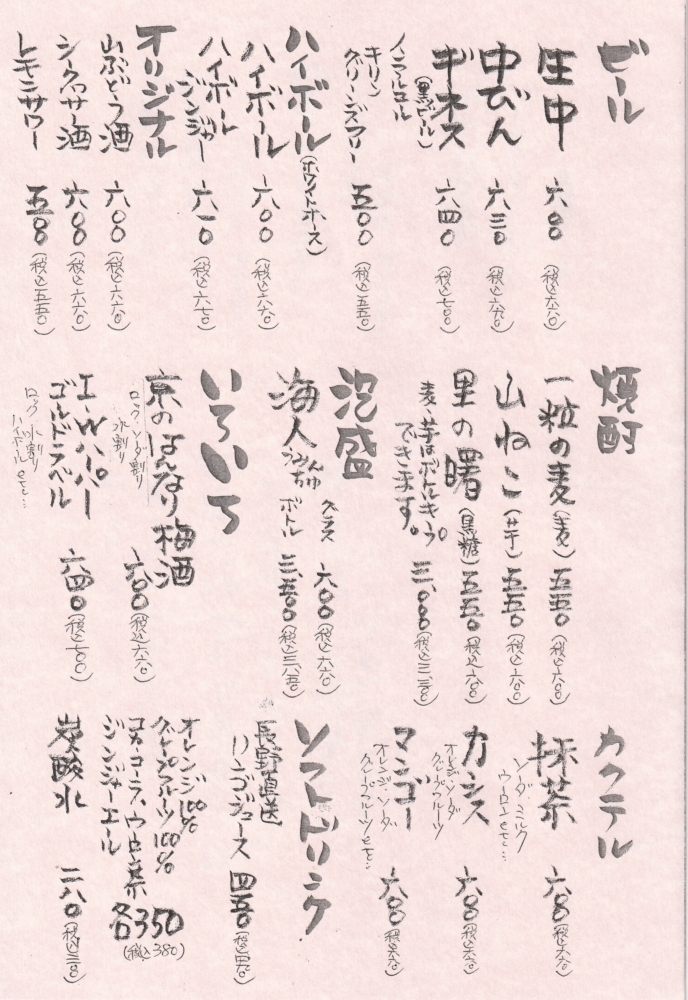 ビール
生中 六〇〇（税込六六〇）
中びん 六三〇（税込六九〇）
ギネス（黒ビール） 六四〇（税込七〇〇）
ノンアルコール
キリン
グリーンズフリー 五〇〇（税込五五〇）
ハイボール（ホワイトホース）
ハイボール 六〇〇（税込六六〇）
ハイボール
ジンジャー 六一〇（税込六七〇）
オリジナル
山ぶどう酒 六〇〇（税込六六〇）
シークヮサー酒 六〇〇（税込六六〇）
レモンサワー 五〇〇（税込五五〇）
焼酎
一粒の麦（麦） 五五〇（税込六〇〇）
山ねこ（芋） 五五〇（税込六〇〇）
里の曙（黒糖） 五五〇（税込六〇〇）
麦、芋はボトルキープ
できます。 三、〇〇〇（税込三、三〇〇）
泡盛
海人 うみんちゅ
グラス 六〇〇（税込六六〇）
ボトル 三、五〇〇（税込三、八五〇）
いろいろ
京のはんなり梅酒 六〇〇（税込六六〇）
ロック・ソーダ割り
水割り
I・Wハーパー
ゴールドラベル 六四〇（税込七〇〇）
ロック 水割り
ハイボールetc…
カクテル
抹茶 六〇〇（税込六六〇）
ソーダ・ミルク
ウーロンetc…
カシス 六〇〇（税込六六〇）
オレンジ・ソーダ
グレープフルーツ
マンゴー 六〇〇（税込六六〇）
オレンジ、ソーダ
グレープフルーツetc…
ソフトドリンク
長野直送
リンゴジュース 四五〇（税込四九〇）
オレンジ100%
グレープフルーツ100%
コカ・コーラ、ウーロン茶
ジンジャーエール
各350
（税込380）
炭酸水 二八〇（税込三〇〇）